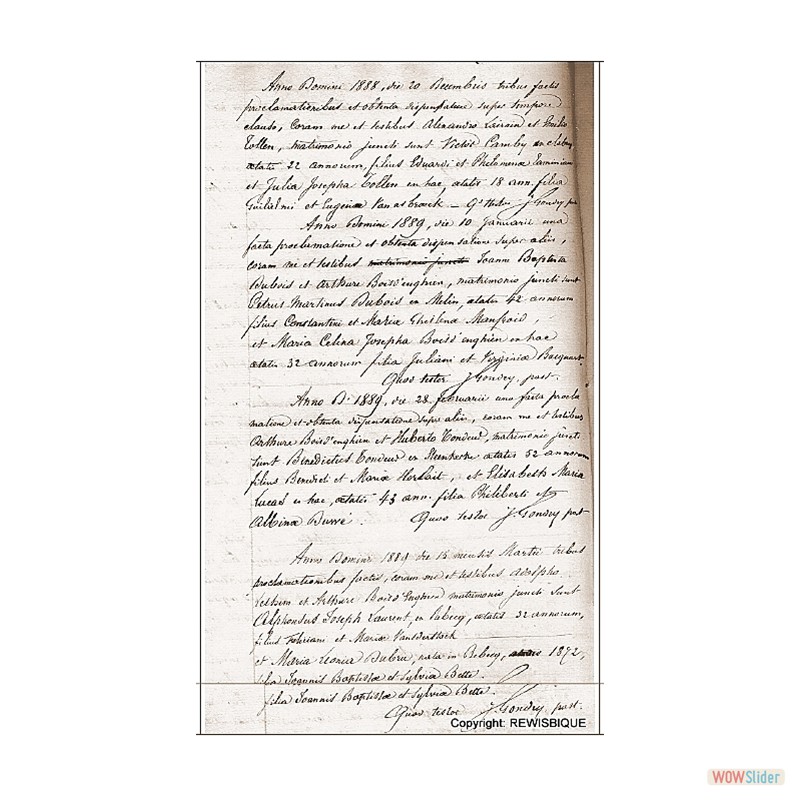 Anno Domini 1888, die 20 Decembris tribus factis
proclamationibus et obtenta dispensatione super tempore
clauso, coram me et testibus Alexandro Lairain et Emilio
Tollen, matrimonio juncti sunt Victor Camby
aetatis 22 annorum, filius Eduardi et Philomenae
et Julia Josepha Tollen en hac, aetatis 18 ann. filia
Guilielmi et Eugeniae Vanasbroeck - Qs testor J. Gondry past
Anno Domini 1889, die 10 Januarii una
facta proclamatione et obtenta dispensatione super aliis,
coram me et testibus matrimonio juncti Joanne Baptista
Dubois et Arthure Boisd'enghien, matrimonio juncti sunt
Petrus Martinus Dubois en Melin, aetatis 42 annorum
filius Constantini et Maria Ghislena Manfroid,
et Maria Celina Josepha Boisd'enghien en hac
aetatis 32 annorum filia Juliani et Virginiae Bacquart.
Quos testor J. Gondry, past.
Anno D. 1889, die 28 februarii una facta procla
matione et obtenta dispensatione super aliis, coram me et testibus
Arthure Boisd'enghien et Huberto Tondeur, matrimonio juncti
sunt Benedictus Tondeur en Steenkerke aetatis 52 annorum
filius Benedicti et Mariae Herbait, et Elisabeth Maria
Lucas en hac, aetatis 43 ann. filia Philiberti et
Albina Durré. Quos testor J. Gondry past
Anno Domini 1889 die 15 mensis Martii tribus
proclamationibus factis, coram me et testibus Adolpho
et Arthure Boisd'Enghien matrimonio juncti sunt
Alphonsus Joseph Laurent, en Rebecq, aetatis 32 annorum,
filius et Mariae Vanderstock
et Maria Leonia Dubru, nata in Rebecq, 1872,
filia Joannis Baptistae et Sylvia Bette.
filia Joannis Baptistae et Sylvia Bette.
Quos testor J. Gondry past.
Copyright: REWISBIQUE
WOWSlider